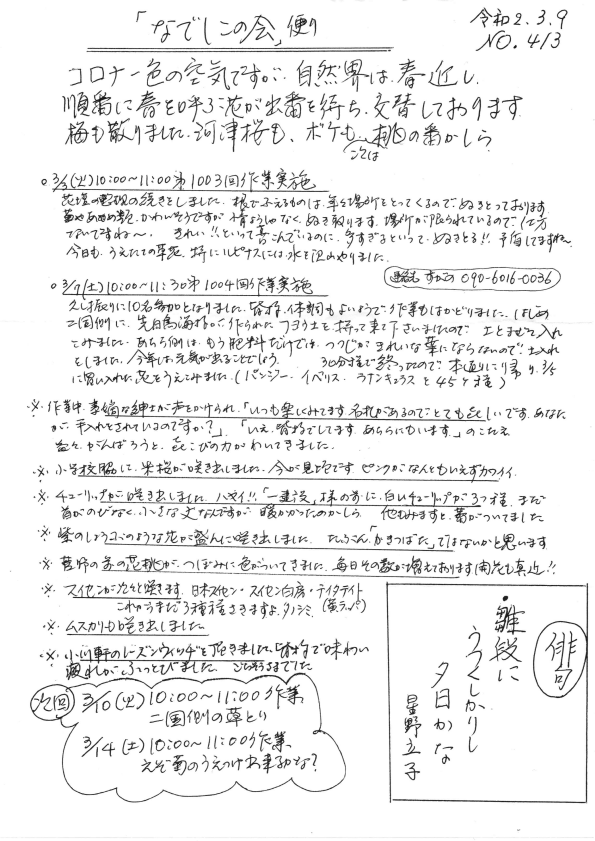 「なでしこの会」便り
令和2.3.9
NO.413
コロナ一色の空気ですが、自然界は、春近し、
順番に春を呼ぶ花が出番を待ち、交替しております
梅も散りました。河津桜も、ボケも、次は桃の番かしら
○3/3(火)10:00〜11:00第1003回作業実施
花壇の野現の続きをしました。根でふえるものは、年々場所をとってくるので、ぬきとっております
かわいそうですが情ようしゃなく、ぬき取ります。場所が限られているので、仕方
ないですね〜、きれい!!といって喜こんでいるのに、多すぎるといって、ぬきとる!!予盾してますね〜
今日も、うえたての草花、特にルピナスには水を沢山やりました。
連絡もすがの090-6016-0036
○3/7(土)10:00〜11:30第1004回作業実施
久し振りに10名参加となりました。皆様、体調もよいようで、作業もはかどりました。はじめ
二国側に、先日鳥海様が作られたフヨウ土を持って来て下さいましたので、土とまぜて入れ
てみました。あちら側は、もう肥料だけでは、つつじがきれいな葉にならないので、土入れ
をしました。今年は元気が出ることでしょう。30分程で終ったので、本通りにり帰り、3/5
に買い入れた花をうえこみました(パンジー・イベリス・ラナンキュラスと45ケ程)
※作業中、素適な紳士が声をかけられ、「いつも楽しくみてます名札があるのでとても、うれしいです。あなた
が、手入れをされているのですか?」「いえ、皆様でしてます。あちらにもいます。」のこたえ
益々、がんばろうと、喜こびの力がわいてきました。
※小学校脇に、米桜が咲き出しました。今が見頃です ピンクがなんともいえずカワイイ
※チューリップが咲き出しました。ハヤイ!!「一建設」様の前に、白いチューリップが3つ程、まだ
首がのびなく、小さな丈なんですが暖かかったのかしら 他もみますと、蕾がついてました
※紫のしょうぶのような花が盛んに咲き出しました。たぶん「かきつばた」ではないかと思います
※菅野の前の花桃が、つぼみに色がついてきました。毎日その数が増えております開花も真近!!
※スイセンが次々と咲きます。日本スイセン・スイセン白房・テイタテイト
これからまだ3種程さきますよ。タノシミ (黄ラッパ)
※ムスカリも咲き出しました
※小川軒のレーズンウィッチを頂きました。皆様で味わい
疲れがふっとびました。ごちそうさまでした
次回
3/10(火)10:00〜11:00作業
二国側の草とり
3/14(土)10:00〜11:00作業
えぞ菊のうえつけ出来るかな?
俳句
・雛段に
うつくしかりし
夕日かな
星野立子